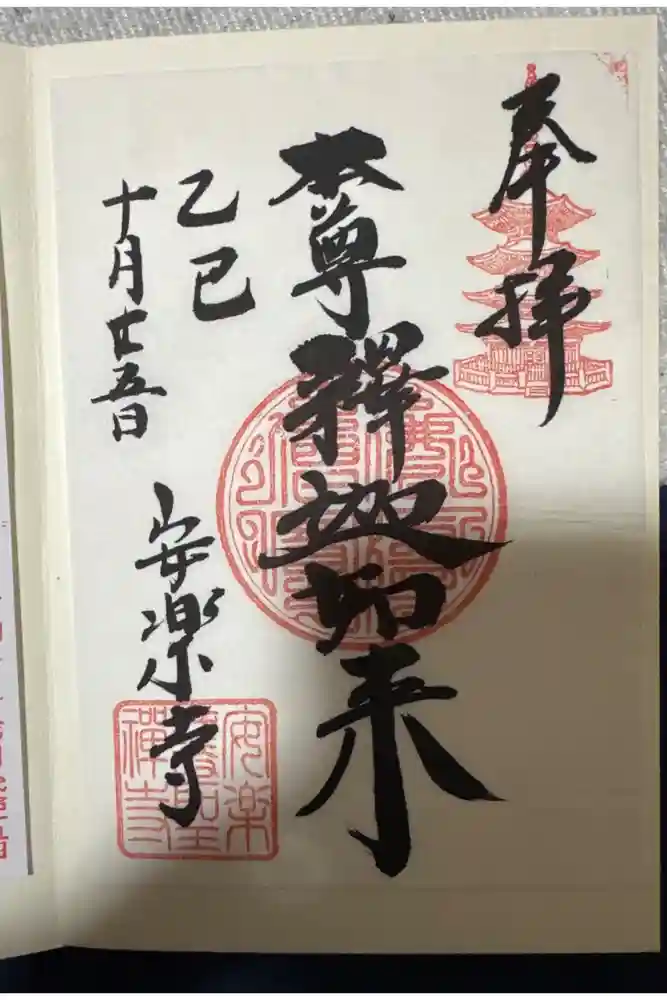 奉拝
本尊釋迦如来
乙巳
十月廿五日
安楽寺
安楽
護聖
禅寺